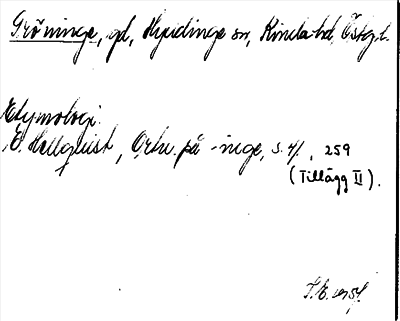 Gröninge, gd, Hycklinge sn, Kinda hd, Östg. l.
Etymologi:
E. Hellquist, Ortn. på -inge, s. 41, 259
(Tillägg II).